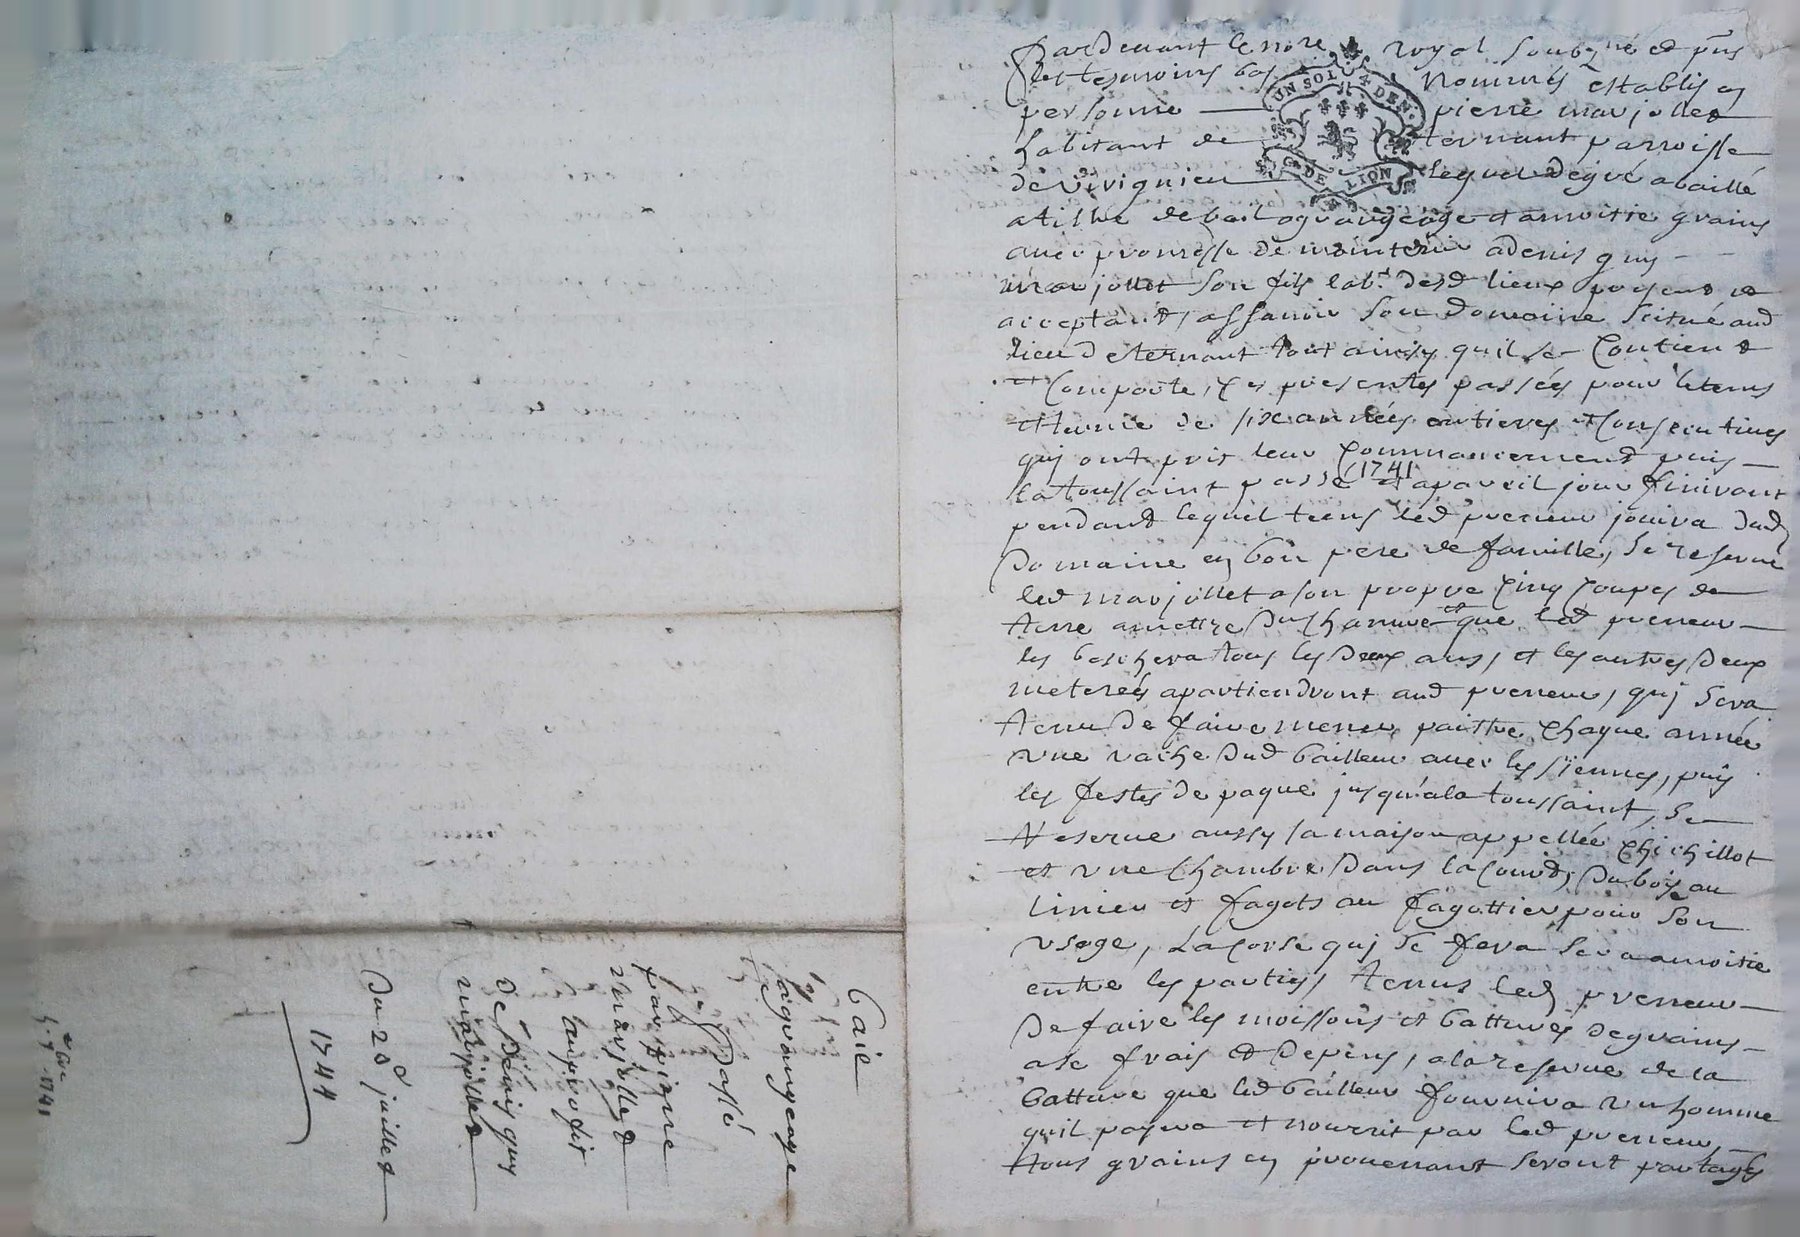 Pardevant le no.re royal soubz.né et p̃ns
les tesmoins bas nommés establis en
personne pierre marjollet
habitant de ternant parroisse
de virignieu lequel de gré a baillé
a tiltre de bail a grangeage et a moitie grains
avec promesse de maintenir a denis guy
marjollet son fils lab.r desd lieux present et
acceptant, assavoir son domaine scitué aud
lieu de ternant tout ainsy quil se contient
et comporte, ces presentes passées pour le tems
et terme de six années entieres et consecutives
qui ont pris leur commancement puis
la toussaint passé 1741 et a pareil jour finiront
pendant lequel tems led preneur jouira dud
domaine en bon pere de famille, se reserve
led marjollet a son propre cinq coupes de
terre a mettre du chanvre et que led preneur
les bechera tous les deux ans, et les autres deux
meterés apartiendront aud preneur, quj sera
tenu de faire mener paittre chaque année
une vache dud bailleur avec les siennes, puis
les festes de paque jusqu'a la toussaint, se
reserve aussy sa maison appellée chichillot
et une chambre dans la cour, du bois au
linier et fagots au fagottier pour son
usage, la corse quj se fera sera a moitie
entre les parties, tenus led preneur
de faire les moissons et battures de grains
a se frais et depens, a la reserve de la
batture que led bailleur fournira un homme
quil payera et nourrit par led preneur
tous grains en provenant seront partagés
UN SOL 4 DEN.
G. DE LION
bail
a grangeage
passé
par pierre
marjollet
au profit
de denis guy
marjollet
Du 28 juillet
1744
1741